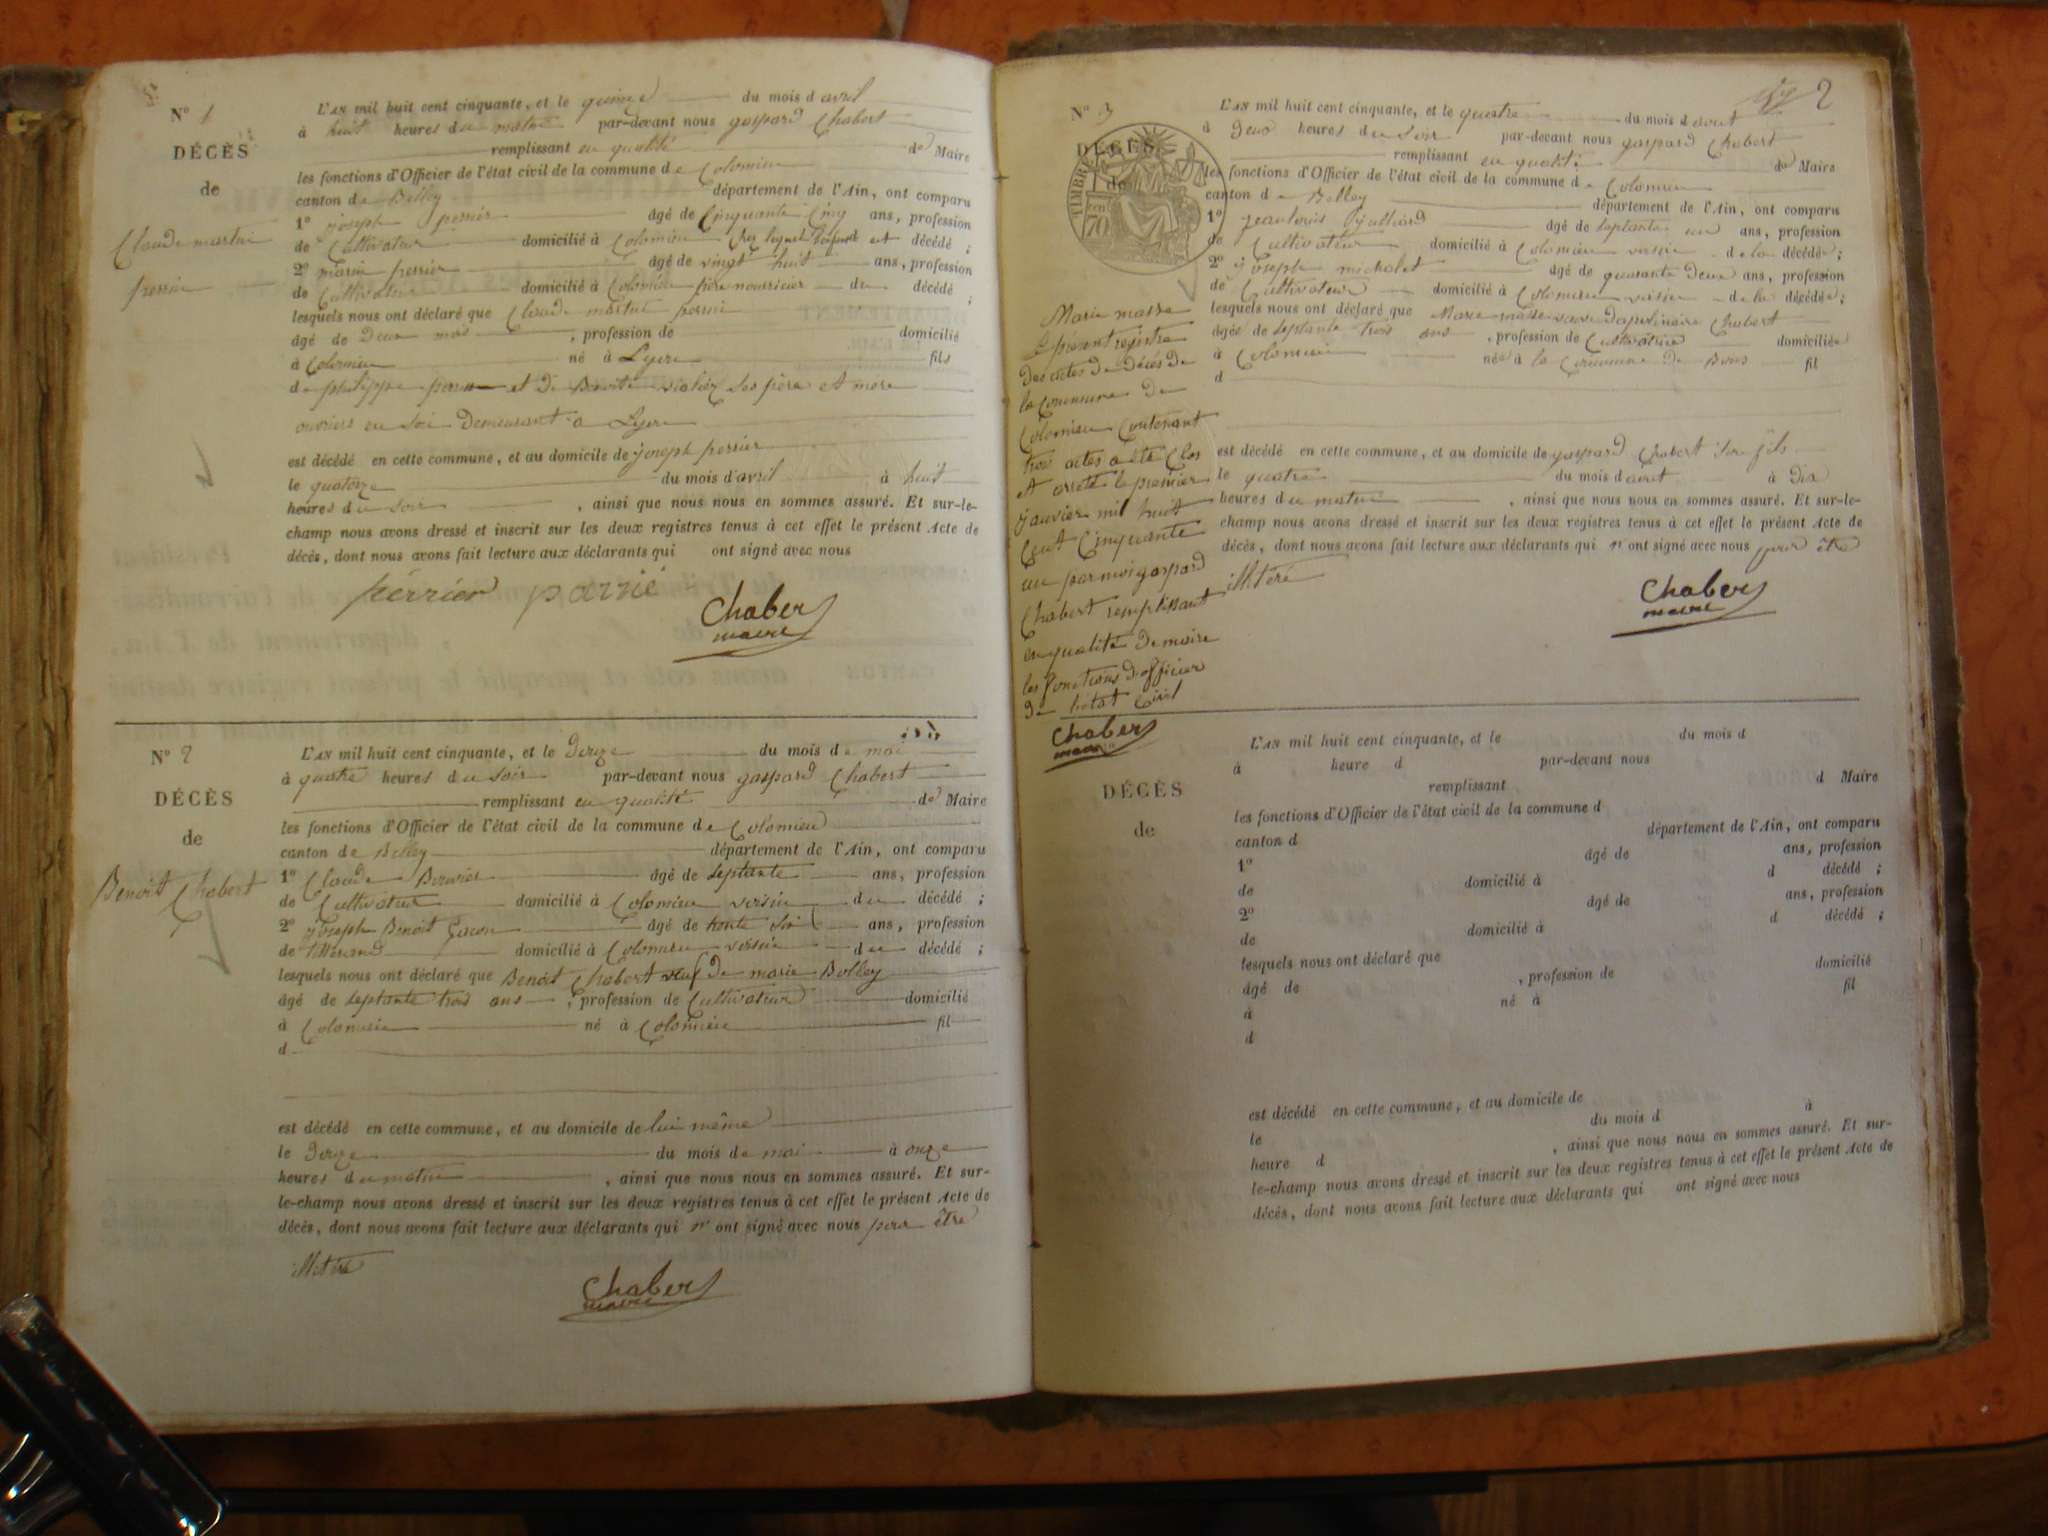 N° 1
DÉCÈS
de
Claude martin
perrin
L'AN mil huit cent cinquante, et le quinze du mois d avril
à huit heures du matin par-devant nous gaspard Chabert
remplissant en qualité de Maire
les fonctions d'Officier de l'état civil de la commune de Colomieu
canton de Belley département de l'Ain, ont comparu
1° joseph perrier âgé de Cinquante Cinq ans, profession
de Cultivateur domicilié à Colomieu Chez lequel est décédé ;
2° marin perrier âgé de vingt huit ans, profession
de Cultivateur domicilié à Colomieu père nourricier du décédé ;
lesquels nous ont déclaré que Claude martin perrin
âgé de Deux mois , profession de domicilié
à Colomieu né à Lyon fils
de philippe perrin et de Benoite ses père et mere
ouvriers en Soie Demeurant a Lyon
est décédé en cette commune, et au domicile de joseph perrier
le quatorze du mois d'avril à huit
heures du soir , ainsi que nous nous en sommes assuré. Et sur-le-
champ nous avons dressé et inscrit sur les deux registres tenus à cet effet le présent Acte de
décès, dont nous avons fait lecture aux déclarants qui ont signé avec nous
perrier parrié
Chabert
maire
N° 2
DÉCÈS
de
Benoit Chabert
L'AN mil huit cent cinquante, et le Douze du mois de mai
à quatre heures du soir par-devant nous gaspard Chabert
remplissant en qualité de Maire
les fonctions d'Officier de l'état civil de la commune de Colomieu
canton de Belley département de l'Ain, ont comparu
1° Claude âgé de Septante ans, profession
de Cultivateur domicilié à Colomieu voisin du décédé ;
2° joseph Benoit âgé de trente Six ans, profession
de tisserand domicilié à Colomieu voisin du décédé ;
lesquels nous ont déclaré que Benoit Chabert veuf de marie Bolley
âgé de Septante trois ans , profession de Cultivateur domicilié
à Colomieu né à Colomieu fil
d
est décédé en cette commune, et au domicile de lui même
le Douze du mois de mai à onze
heures du matin , ainsi que nous nous en sommes assuré. Et sur-
le-champ nous avons dressé et inscrit sur les deux registres tenus à cet effet le présent Acte de
décès, dont nous avons fait lecture aux déclarants qui n' ont signé avec nous pour être
illitéré
Chabert
maire
2
N° 3
DÉCÈS
de
TIMBRE
70
Marie masse
Le présent registre
des actes de Décès de
la Commune de
Colomieu Contenant
trois actes a été Clos
et arrêté le premier
janvier mil huit
Cent Cinquante
un par moi gaspard
Chabert remplissant
en qualité de maire
les fonctions d'officier
de l'état Civil
Chabert
maire
L'AN mil huit cent cinquante, et le quatre du mois d aout
à Deux heures du soir par-devant nous gaspard Chabert
remplissant en qualité de Maire
les fonctions d'Officier de l'état civil de la commune de Colomieu
canton de Belley département de l'Ain, ont comparu
1° jean louis julliard âgé de Septante un ans, profession
de Cultivateur domicilié à Colomieu voisin de la décédée ;
2° joseph michalet âgé de quarante Deux ans, profession
de Cultivateur domicilié à Colomieu voisin de la décédée ;
lesquels nous ont déclaré que Marie masse veuve Chabert
âgée de Septante trois ans , profession de Cultivatrice domiciliée
à Colomieu née à la Commune de fil
d
est décédé en cette commune, et au domicile de gaspard Chabert Son fils
le quatre du mois d'aout à Dix
heures du matin , ainsi que nous nous en sommes assuré. Et sur-le-
champ nous avons dressé et inscrit sur les deux registres tenus à cet effet le présent Acte de
décès, dont nous avons fait lecture aux déclarants qui n' ont signé avec nous pour être
illitéré
Chabert
maire
DÉCÈS
de
L'AN mil huit cent cinquante, et le du mois d
à heure d par-devant nous
remplissant d Maire
les fonctions d'Officier de l'état civil de la commune d
canton d département de l'Ain, ont comparu
1° âgé de ans, profession
de domicilié à d décédé ;
2° âgé de ans, profession
de domicilié à d décédé ;
lesquels nous ont déclaré que
âgé de , profession de domicilié
à né à fil
d
est décédé en cette commune, et au domicile de
le du mois d à
heure d , ainsi que nous nous en sommes assuré. Et sur-
le-champ nous avons dressé et inscrit sur les deux registres tenus à cet effet le présent Acte de
décès, dont nous avons fait lecture aux déclarants qui ont signé avec nous